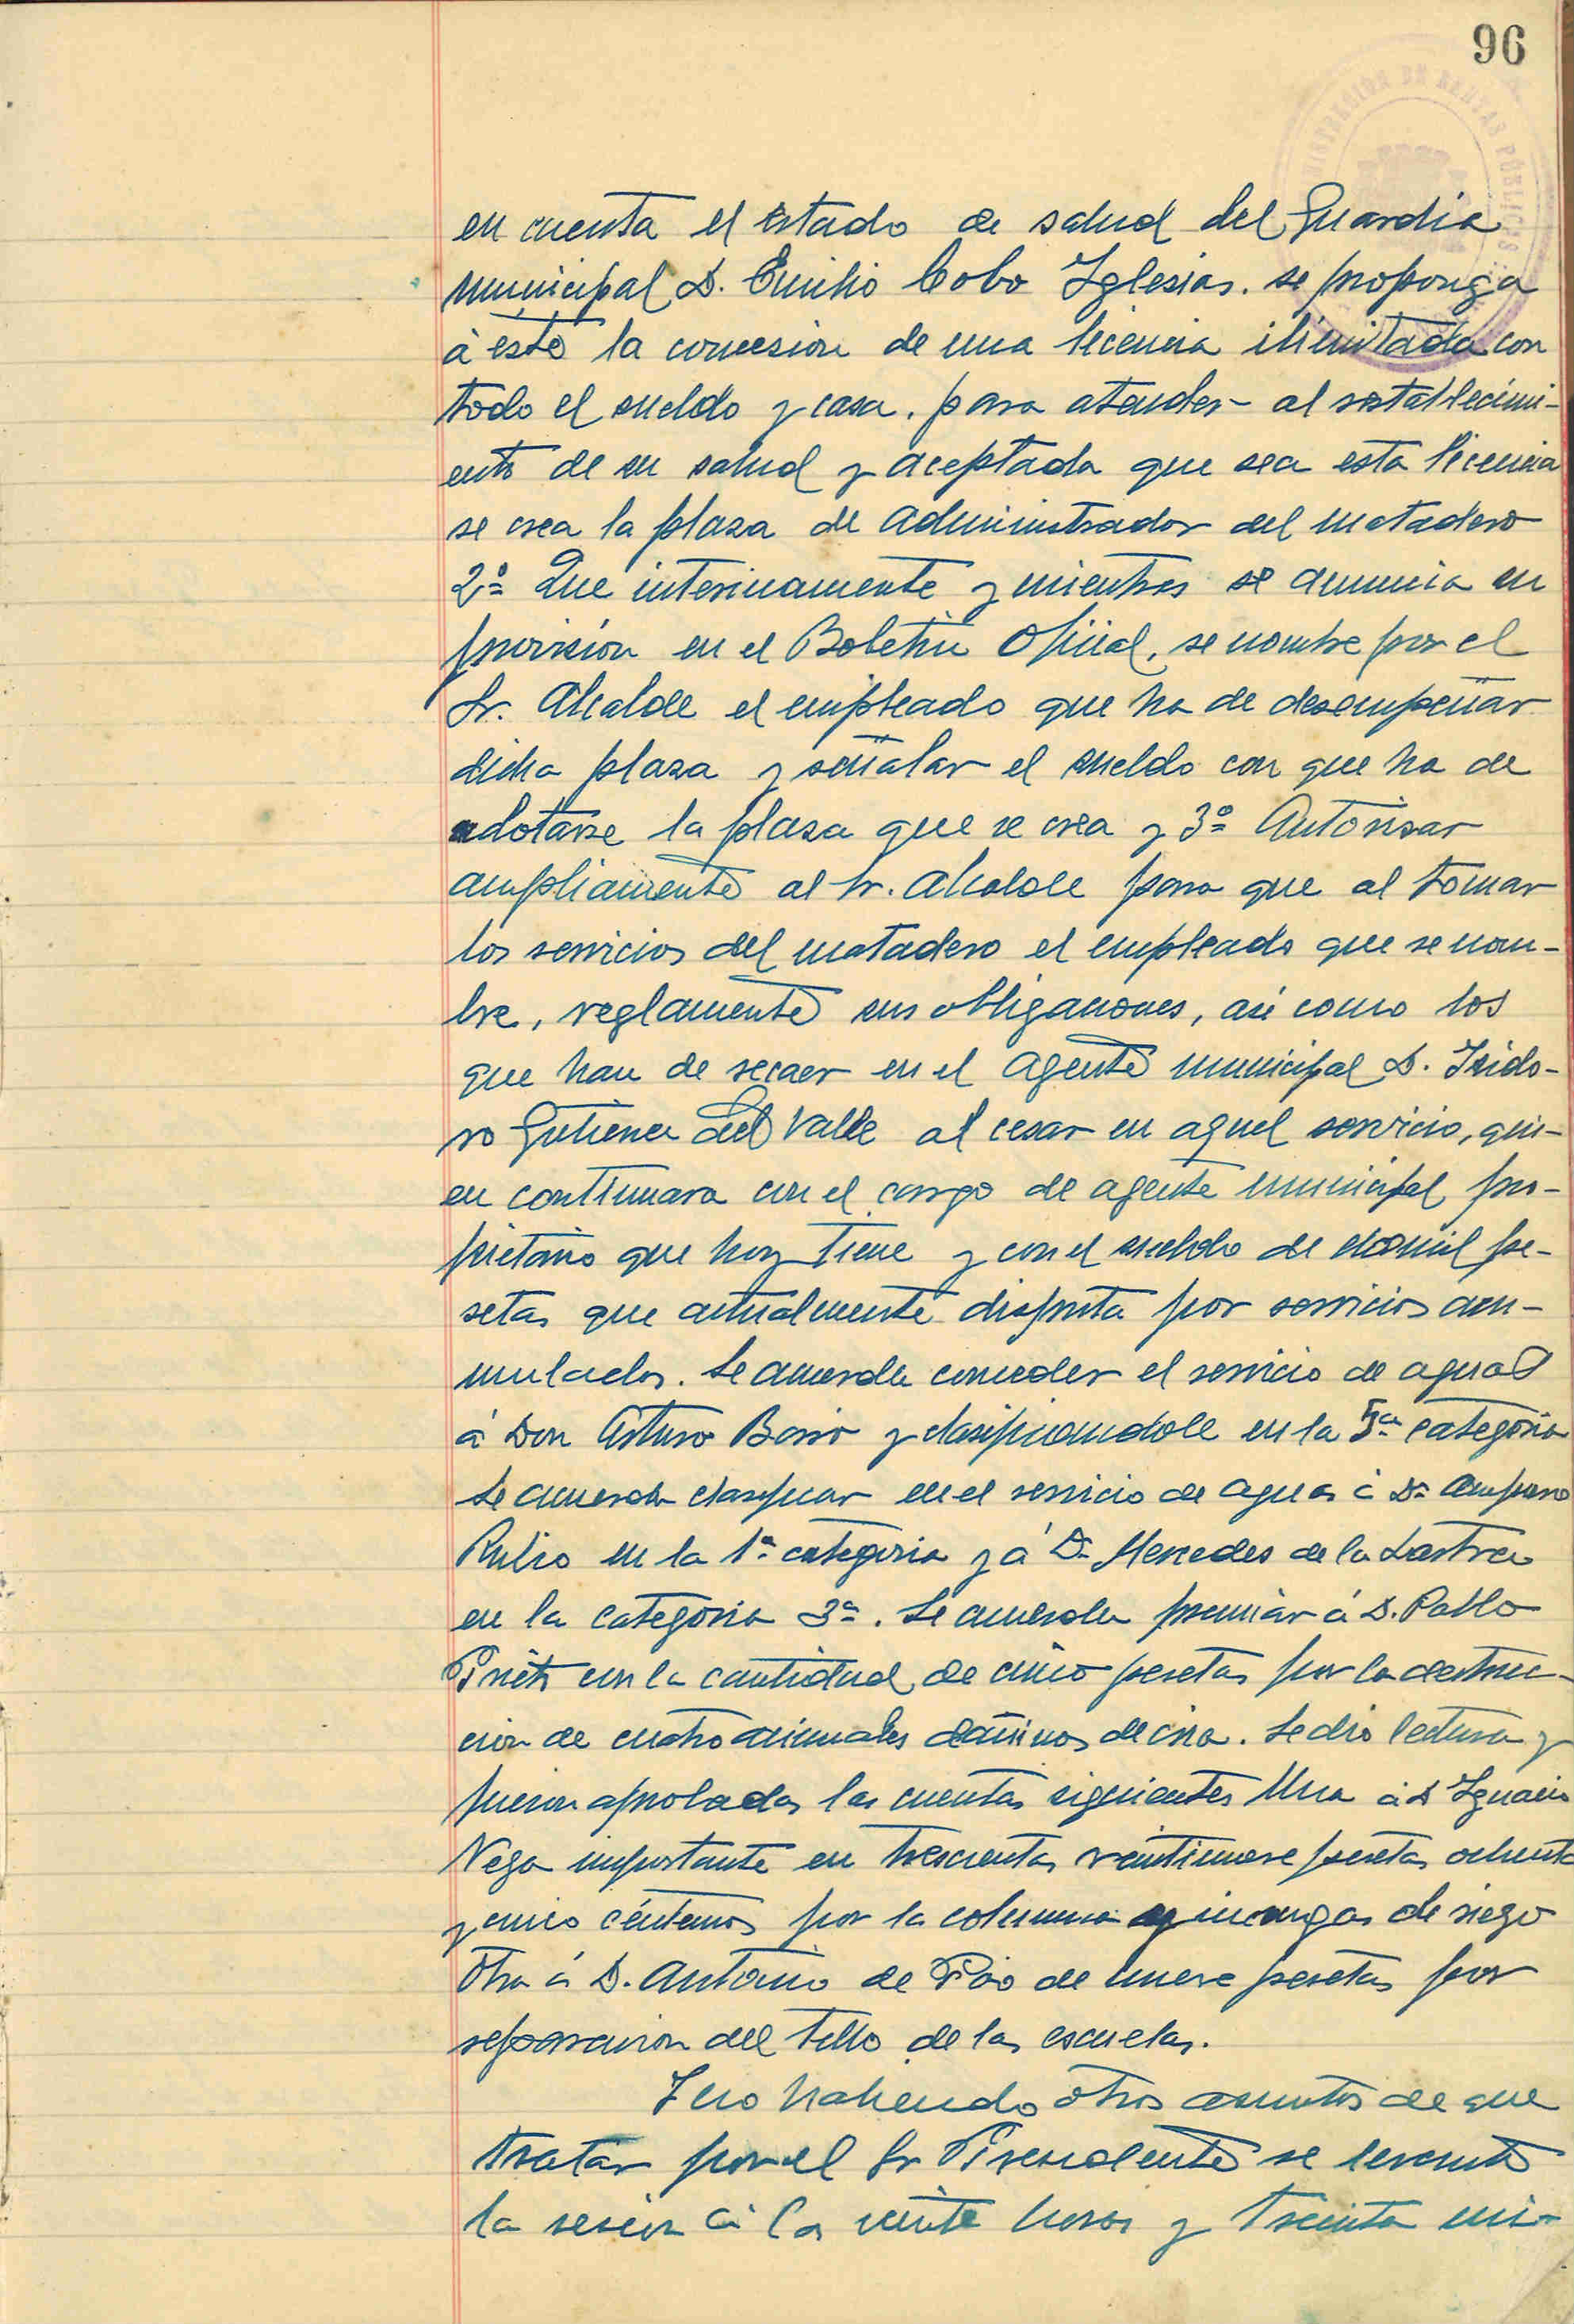 96
ADMINISTRACIÓN DE RENTAS PÚBLICAS
en cuenta el estado de salud del Guardia
municipal D. Emilio Cobo Iglesias. se proponga
à éste la concesion de una licencia ilimitada con
todo el sueldo y casa, para atender al restablecimi-
ento de su salud y aceptada que sea esta licencia
se crea la plaza de administrador del matadero
2º Que interinamente y mientras se anuncia su
provisión en el Boletin Oficial, se nombre por el
Sr. Alcalde el empleado que ha de desempeñar
dicha plaza y señalar el sueldo con que ha de
dotarse la plaza que se crea y 3º Autorisar
ampliamente al Sr. Alcalde para que al tomar
los servicios del matadero el empleado que se nom-
bre, reglamente sus obligaciones, asi como los
que han de recaer en el agente municipal D. Isido-
ro Gutierrez del Valle al cesar en aquel servicio, qui-
en continuara con el cargo de agente municipal pro-
pietario que hoy tiene y con el sueldo de dosmil pe-
setas que actualmente disfruta por servicios acu-
mulados. Se acuerda conceder el servicio de aguas
á Don Arturo Barro y clasificandole en la 5ª categoria
Se acuerda clasificar en el servicio de aguas á Dª Amparo
Rubio en la 1ª categoria y á Dª Mercedes de la Lastra
en la categoria 3ª. Se acuerda premiar á D. Pablo
Prieto con la cantidad de cinco pesetas por la destruc-
cion de cuatro animales dañinos de cria. Se dio lectura y
fueron aprobadas las cuentas siguientes Una á D Ignacio
Vega importante en trescientas veintinueve pesetas ochenta
y cinco céntimos por la columna y mangas de riego
Otra á D. Antonio de Pío de nueve pesetas por
reparacion del tillo de las escuelas.
Y no habiendo otros asuntos de que
tratar por el Sr Presidente se levanto
la sesion á las veinte horas y treinta mi-